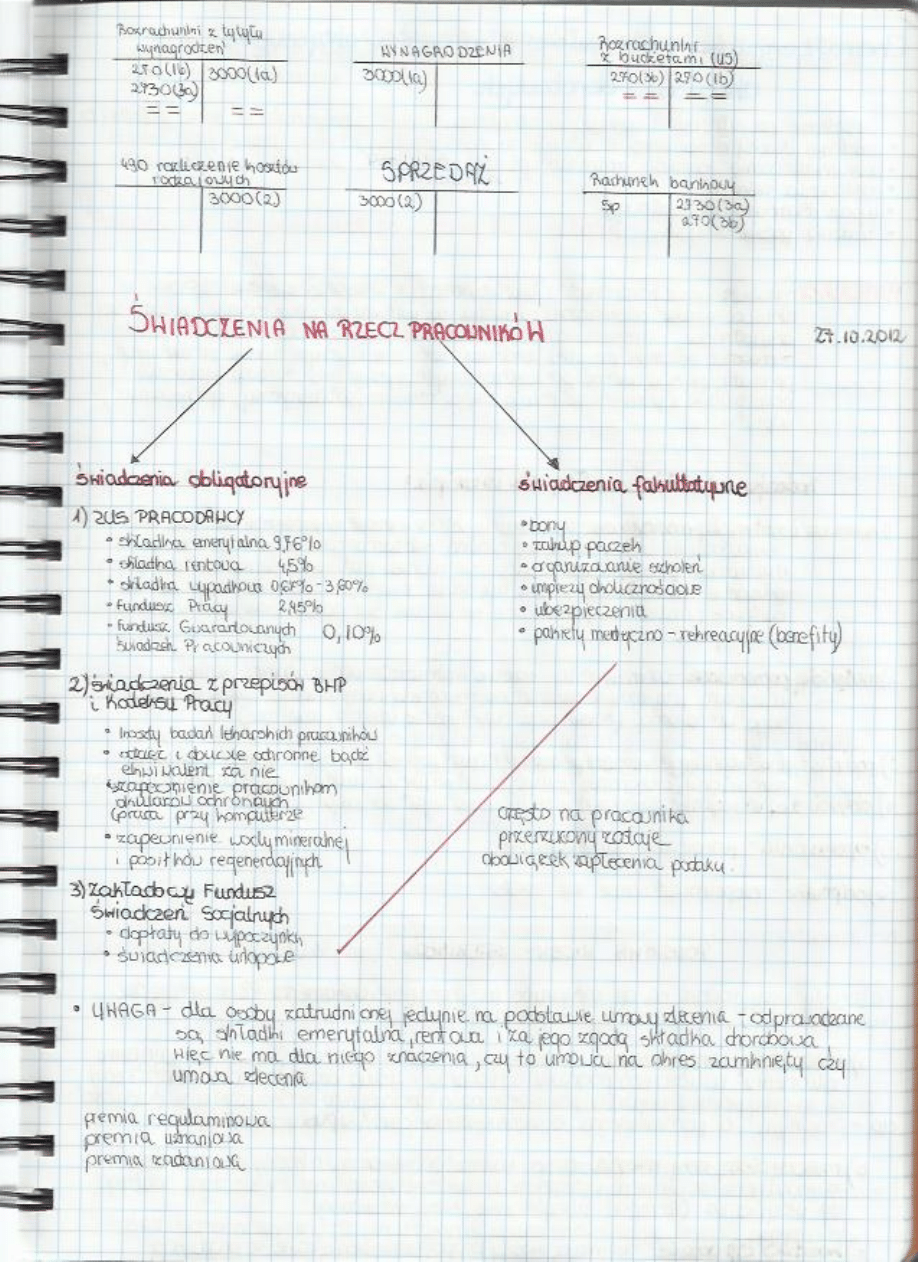 Rozrachunki z tytułu
wynagrodzeń
270(1b) 3000(1a)
2730(3a)
= = = =
WYNAGRODZENIA
3000(1a)
Rozrachunki
z budżetami (US)
270(3b) 270(1b)
= = = =
490 rozliczenie kosztów
rodzajowych
3000(2)
SPRZEDAŻ
3000(2)
Rachunek bankowy
Sp 2730(3a)
270(3b)
ŚWIADCZENIA NA RZECZ PRACOWNIKÓW
27.10.2012
świadczenia obligatoryjne
1) ZUS PRACODAWCY
• składka emerytalna 9,76%
• składka rentowa 4,5%
• składka wypadkowa 0,67% - 3,80%
• Fundusz Pracy 2,45%
• fundusz Gwarantowanych 0,10%
Świadczeń Pracowniczych
2) świadczenia z przepisów BHP
i Kodeksu Pracy
• koszty badań lekarskich pracowników
• odzież i obuwie ochronne bądź
ekwiwalent za nie
• zapewnienie pracownikom
okularów ochronnych
(praca przy komputerze
• zapewnienie wody mineralnej
i posiłków regeneracyjnych
3) Zakładowy Fundusz
Świadczeń Socjalnych
• dopłaty do wypoczynku
• świadczenia urlopowe
świadczenia fakultatywne
• bony
• zakup paczek
• organizowanie szkoleń
• imprezy okolicznościowe
• ubezpieczenia
• pakiety medyczno - rekreacyjne (benefity)
często na pracownika
przerzucony zostaje
obowiązek zapłecenia podatku.
• UWAGA - dla osoby zatrudnionej jedynie na podstawie umowy zlecenia - odprowadzane
są składki emerytalna, rentowa i za jego zgodą składka chorobowa,
więc nie ma dla niego znaczenia, czy to umowa na okres zamknięty czy
umowa zlecenia
premia regulaminowa
premia uznaniowa
premia zadaniowa